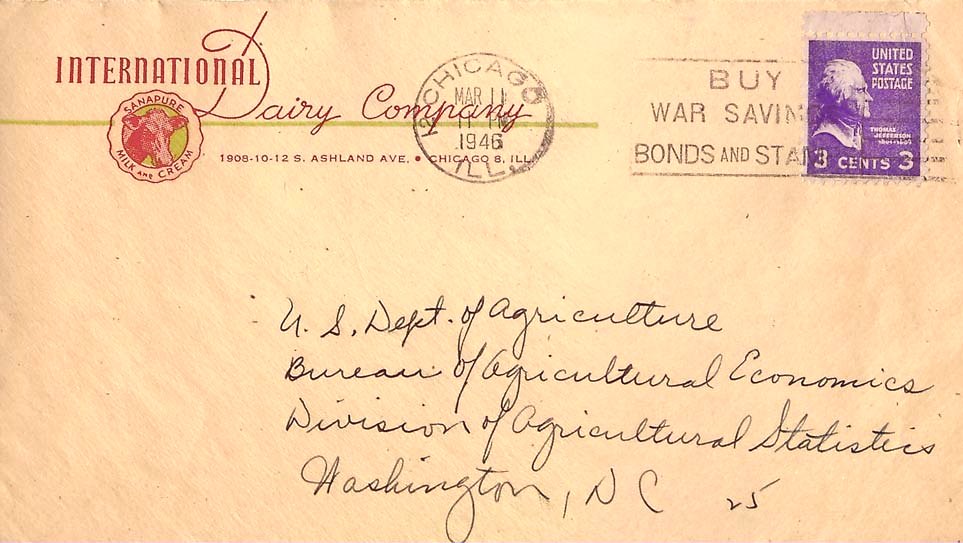 INTERNATIONAL
Dairy Company
SANAPURE
MILK AND CREAM
1908-10-12 S. ASHLAND AVE. • CHICAGO 8, ILL.
CHICAGO
MAR 11
11 PM
1946
ILL.
BUY
WAR SAVIN
BONDS AND STAM
UNITED
STATES
POSTAGE
THOMAS
JEFFERSON
1801-1809
3 CENTS 3
U. S. Dept. of Agriculture
Bureau of Agricultural Economics
Division of Agricultural Statistics
Washington, D C 25